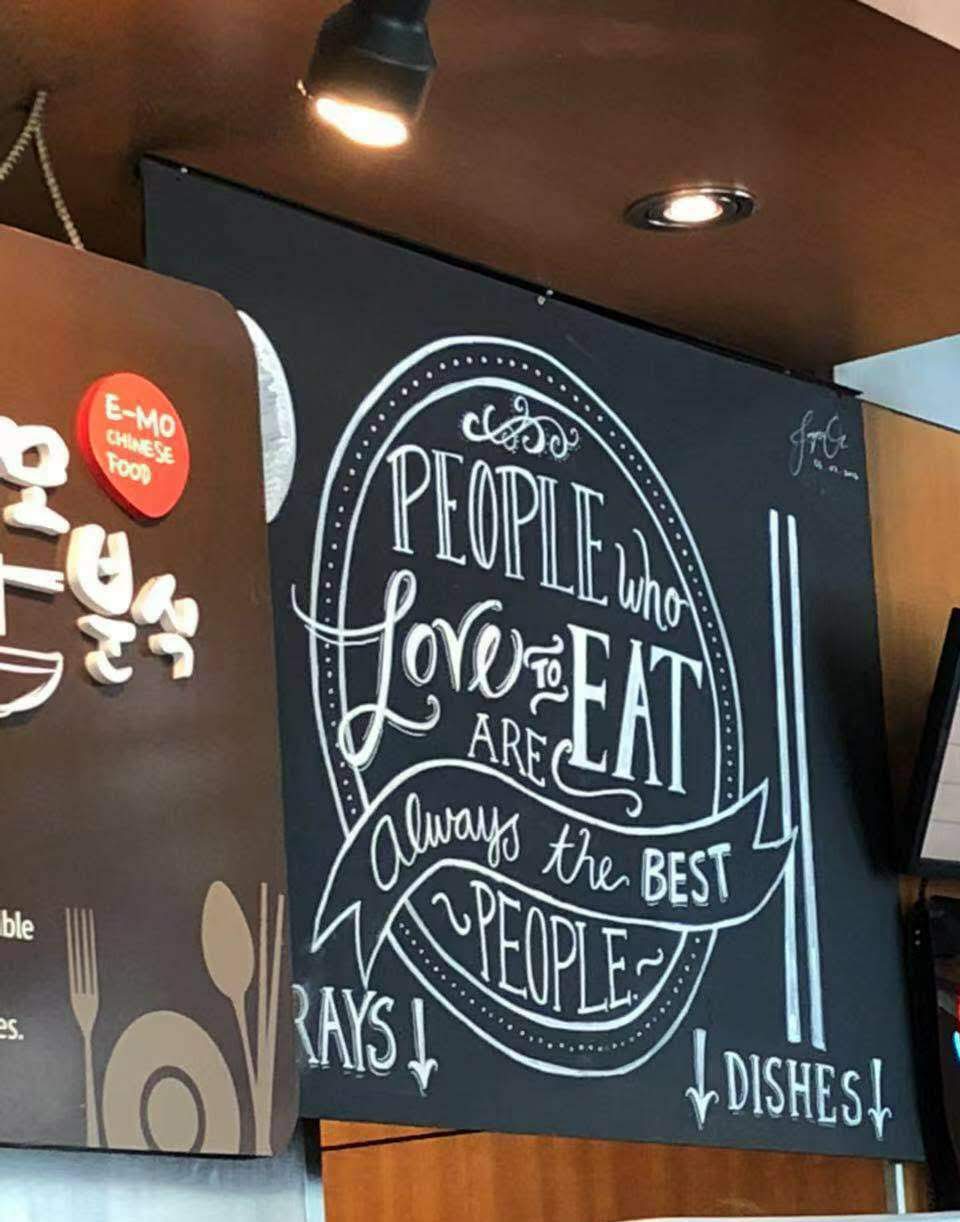 E-MO
CHINESE
FOOD
모
분식
ble
es.
PEOPLE who
Love TO EAT
ARE
always the BEST
~PEOPLE.~
RAYS
DISHES